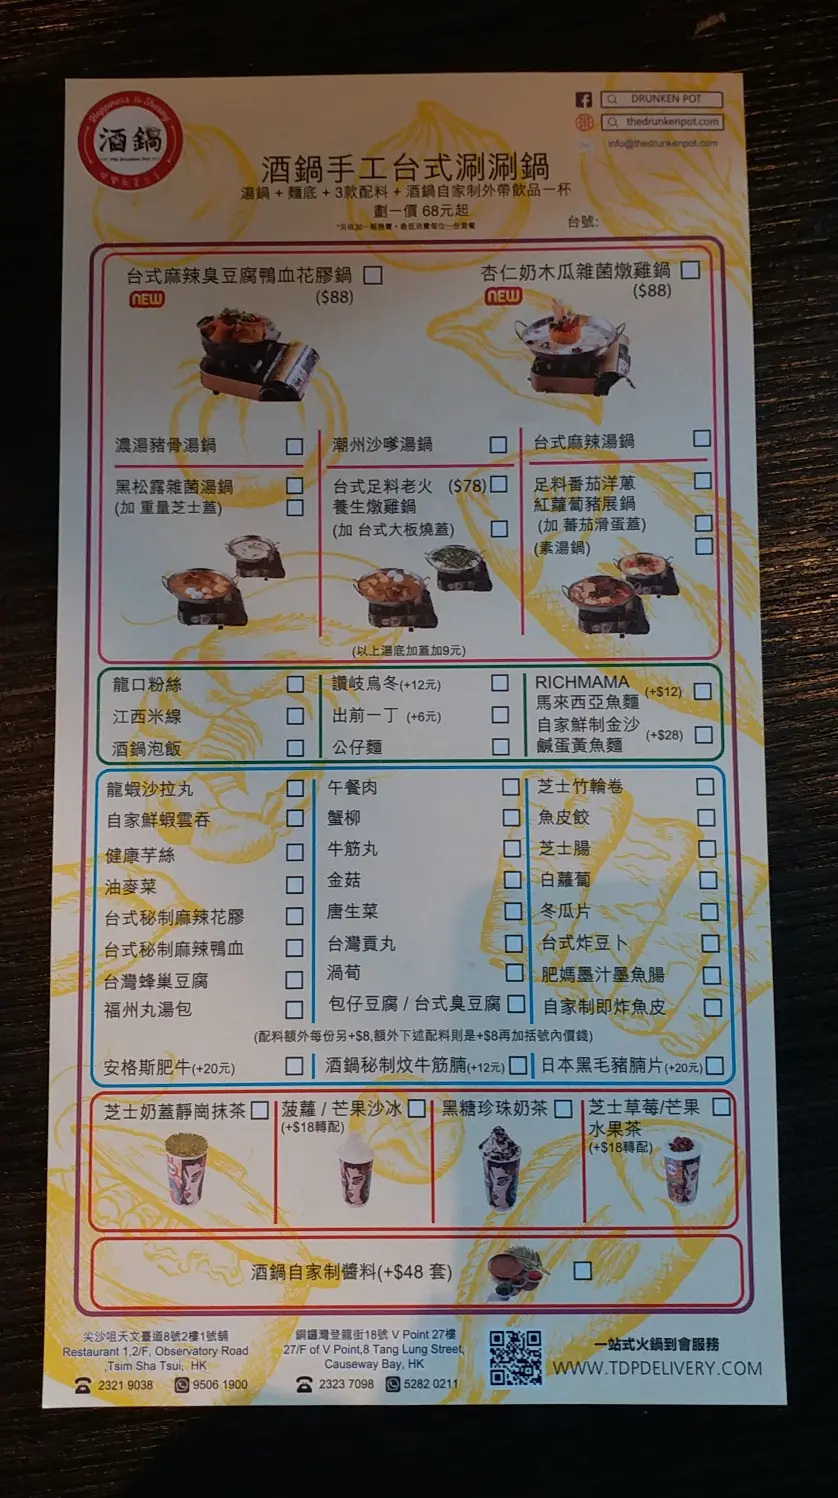 Happiness is Sharing
酒鍋
The Drunken Pot
DRUNKEN POT
thedrunkenpot.com
info@thedrunkenpot.com
酒鍋手工台式涮涮鍋
湯鍋 + 麵底 + 3款配料 + 酒鍋自家制外帶飲品一杯
劃一價 68元起
*另收加一服務費，最低消費每位一份套餐
台號:
台式麻辣臭豆腐鴨血花膠鍋
NEW
($88)
杏仁奶木瓜雜菌燉雞鍋
NEW
($88)
濃湯豬骨湯鍋
潮州沙嗲湯鍋
台式麻辣湯鍋
黑松露雜菌湯鍋
(加 重量芝士蓋)
台式足料老火 ($78)
養生燉雞鍋
(加 台式大板燒蓋)
足料番茄洋蔥
紅蘿蔔豬展鍋
(加 蕃茄滑蛋蓋)
(素湯鍋)
(以上湯底加蓋加9元)
龍口粉絲
讚岐烏冬(+12元)
RICHMAMA
馬來西亞魚麵 (+$12)
江西米線
出前一丁 (+6元)
自家鮮制金沙
鹹蛋黃魚麵 (+$28)
酒鍋泡飯
公仔麵
龍蝦沙拉丸
午餐肉
芝士竹輪卷
自家鮮蝦雲吞
蟹柳
魚皮餃
健康芋絲
牛筋丸
芝士腸
油麥菜
金菇
白蘿蔔
台式秘制麻辣花膠
唐生菜
冬瓜片
台式秘制麻辣鴨血
台灣貢丸
台式炸豆卜
台灣蜂巢豆腐
渦荀
肥媽墨汁墨魚腸
福州丸湯包
包仔豆腐 / 台式臭豆腐
自家制即炸魚皮
(配料額外每份另+$8,額外下述配料則是+$8再加括號內價錢)
安格斯肥牛(+20元)
酒鍋秘制炆牛筋腩(+12元)
日本黑毛豬腩片(+20元)
芝士奶蓋靜崗抹茶
菠蘿 / 芒果沙冰
(+$18轉配)
黑糖珍珠奶茶
芝士草莓/芒果
水果茶
(+$18轉配)
酒鍋自家制醬料(+$48 套)
尖沙咀天文臺道8號2樓1號舖
Restaurant 1,2/F, Observatory Road
,Tsim Sha Tsui, HK
2321 9038 9506 1900
銅鑼灣登龍街18號 V Point 27樓
27/F of V Point,8 Tang Lung Street,
Causeway Bay, HK
2323 7098 5282 0211
一站式火鍋到會服務
WWW.TDPDELIVERY.COM